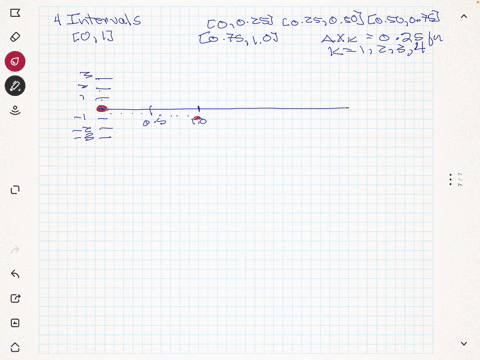 4 Intervals [0, 0.25] [0.25, 0.50] [0.50, 0.75]
[0, 1] [0.75, 1.0] ΔxK = 0.25 for
K = 1, 2, 3, 4
3
2
1
-1 0.5 1.0
-2
-3
7 / 7